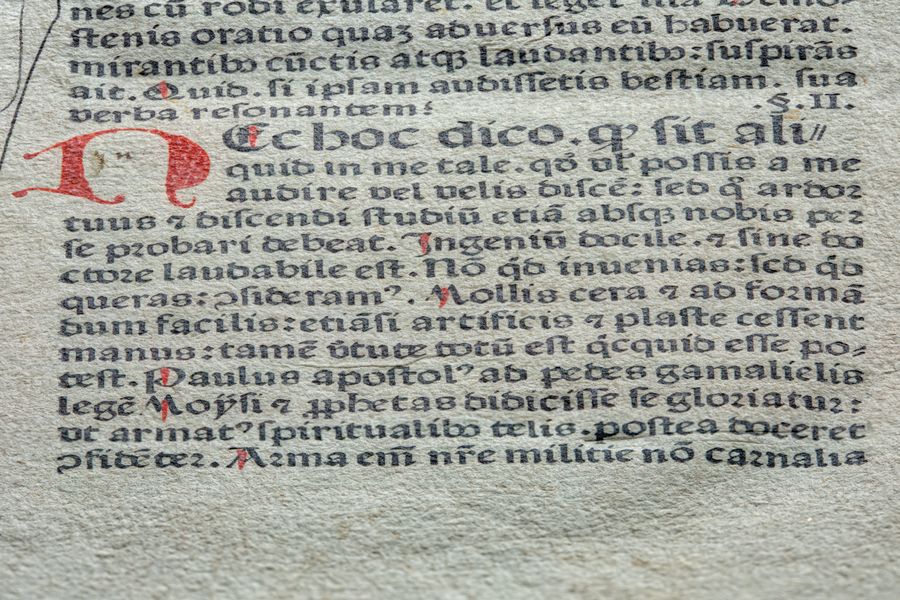 nes cū rodi exularet. et legeret illa demo-
stenis oratio quaꝫ aduersus eū habuerat.
mirantibꝰ cūctis atqꝫ laudantibꝰ: suspirās
ait. Quid. si ipsam audissetis bestiam. sua
verba resonantem?
.§.II.
NEc hoc dico. ꝙ sit ali//
quid in me tale. qď vľ possis a me
audire vel velis discē: sed q̄ ardor
tuus ⁊ discendi studiū etiā absqꝫ nobis per
se probari debeat. Ingeniū docile. ⁊ sine do
ctore laudabile est. Nō qd̄ inuenias: sed qd̄
queras: ꝯsideramꝰ. Mollis cera ⁊ ad formā
dum facilis: etiāsi artificis ⁊ plaste cessent
manus: tamē v̄tute totū est q̇cquid esse po-
test. Paulus apostolꝰ ad pedes gamalielis
legē Moÿsi ⁊ ꝓphetas didicisse se gloriatur:
vt armatꝰ spiritualibꝰ telis. postea doceret
ꝯfidēter. Arma em̄ nr̄e militie nō carnalia